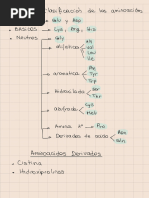 Clasificación de los aminoácidos
Glu y Asp
• BÁSICOS → Lys, Arg, His
• Neutros → Gly
alifáticos
Ala
Val
Leu
Ile
aromática
Phe
Tyr
Trp
hidroxilado
Ser
Thr
azufrado
Cys
Met
Amina 2ª → Pro
Derivados de ácido
Asn
Gln
Aminoácidos Derivados
• Cistina
• Hidroxiprolina